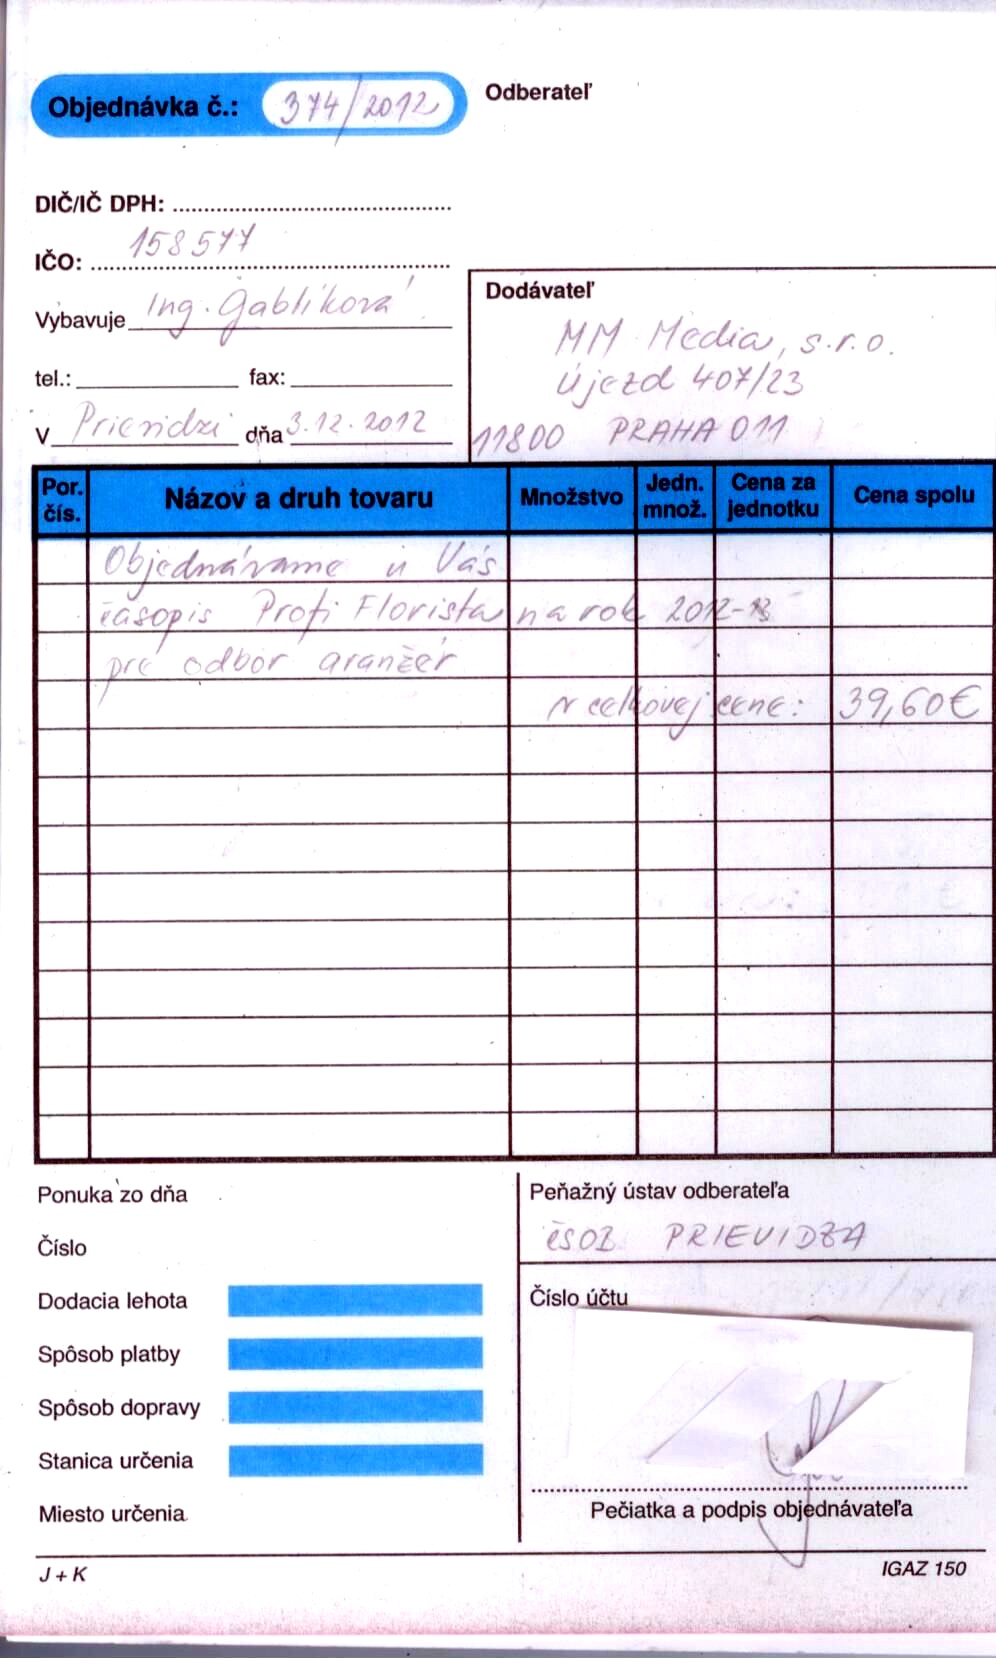 Objednávka č.: 374/2012
Odberateľ
DIČ/IČ DPH:
IČO: 158577
Vybavuje Ing. Gablíková
tel.: fax:
V Prievidzi dňa 3.12.2012
Dodávateľ
MM Media, s.r.o.
Újezd 407/23
11800 PRAHA 011
Por. čís. Názov a druh tovaru Množstvo Jedn. množ. Cena za jednotku Cena spolu
Objednávame u Vás
časopis Profi Florista na rok 2012-13
pre odbor aranžér
v celkovej cene: 39,60€
Ponuka zo dňa
Číslo
Dodacia lehota
Spôsob platby
Spôsob dopravy
Stanica určenia
Miesto určenia
Peňažný ústav odberateľa
ČSOB PRIEVIDZA
Číslo účtu
Pečiatka a podpis objednávateľa
J + K
IGAZ 150